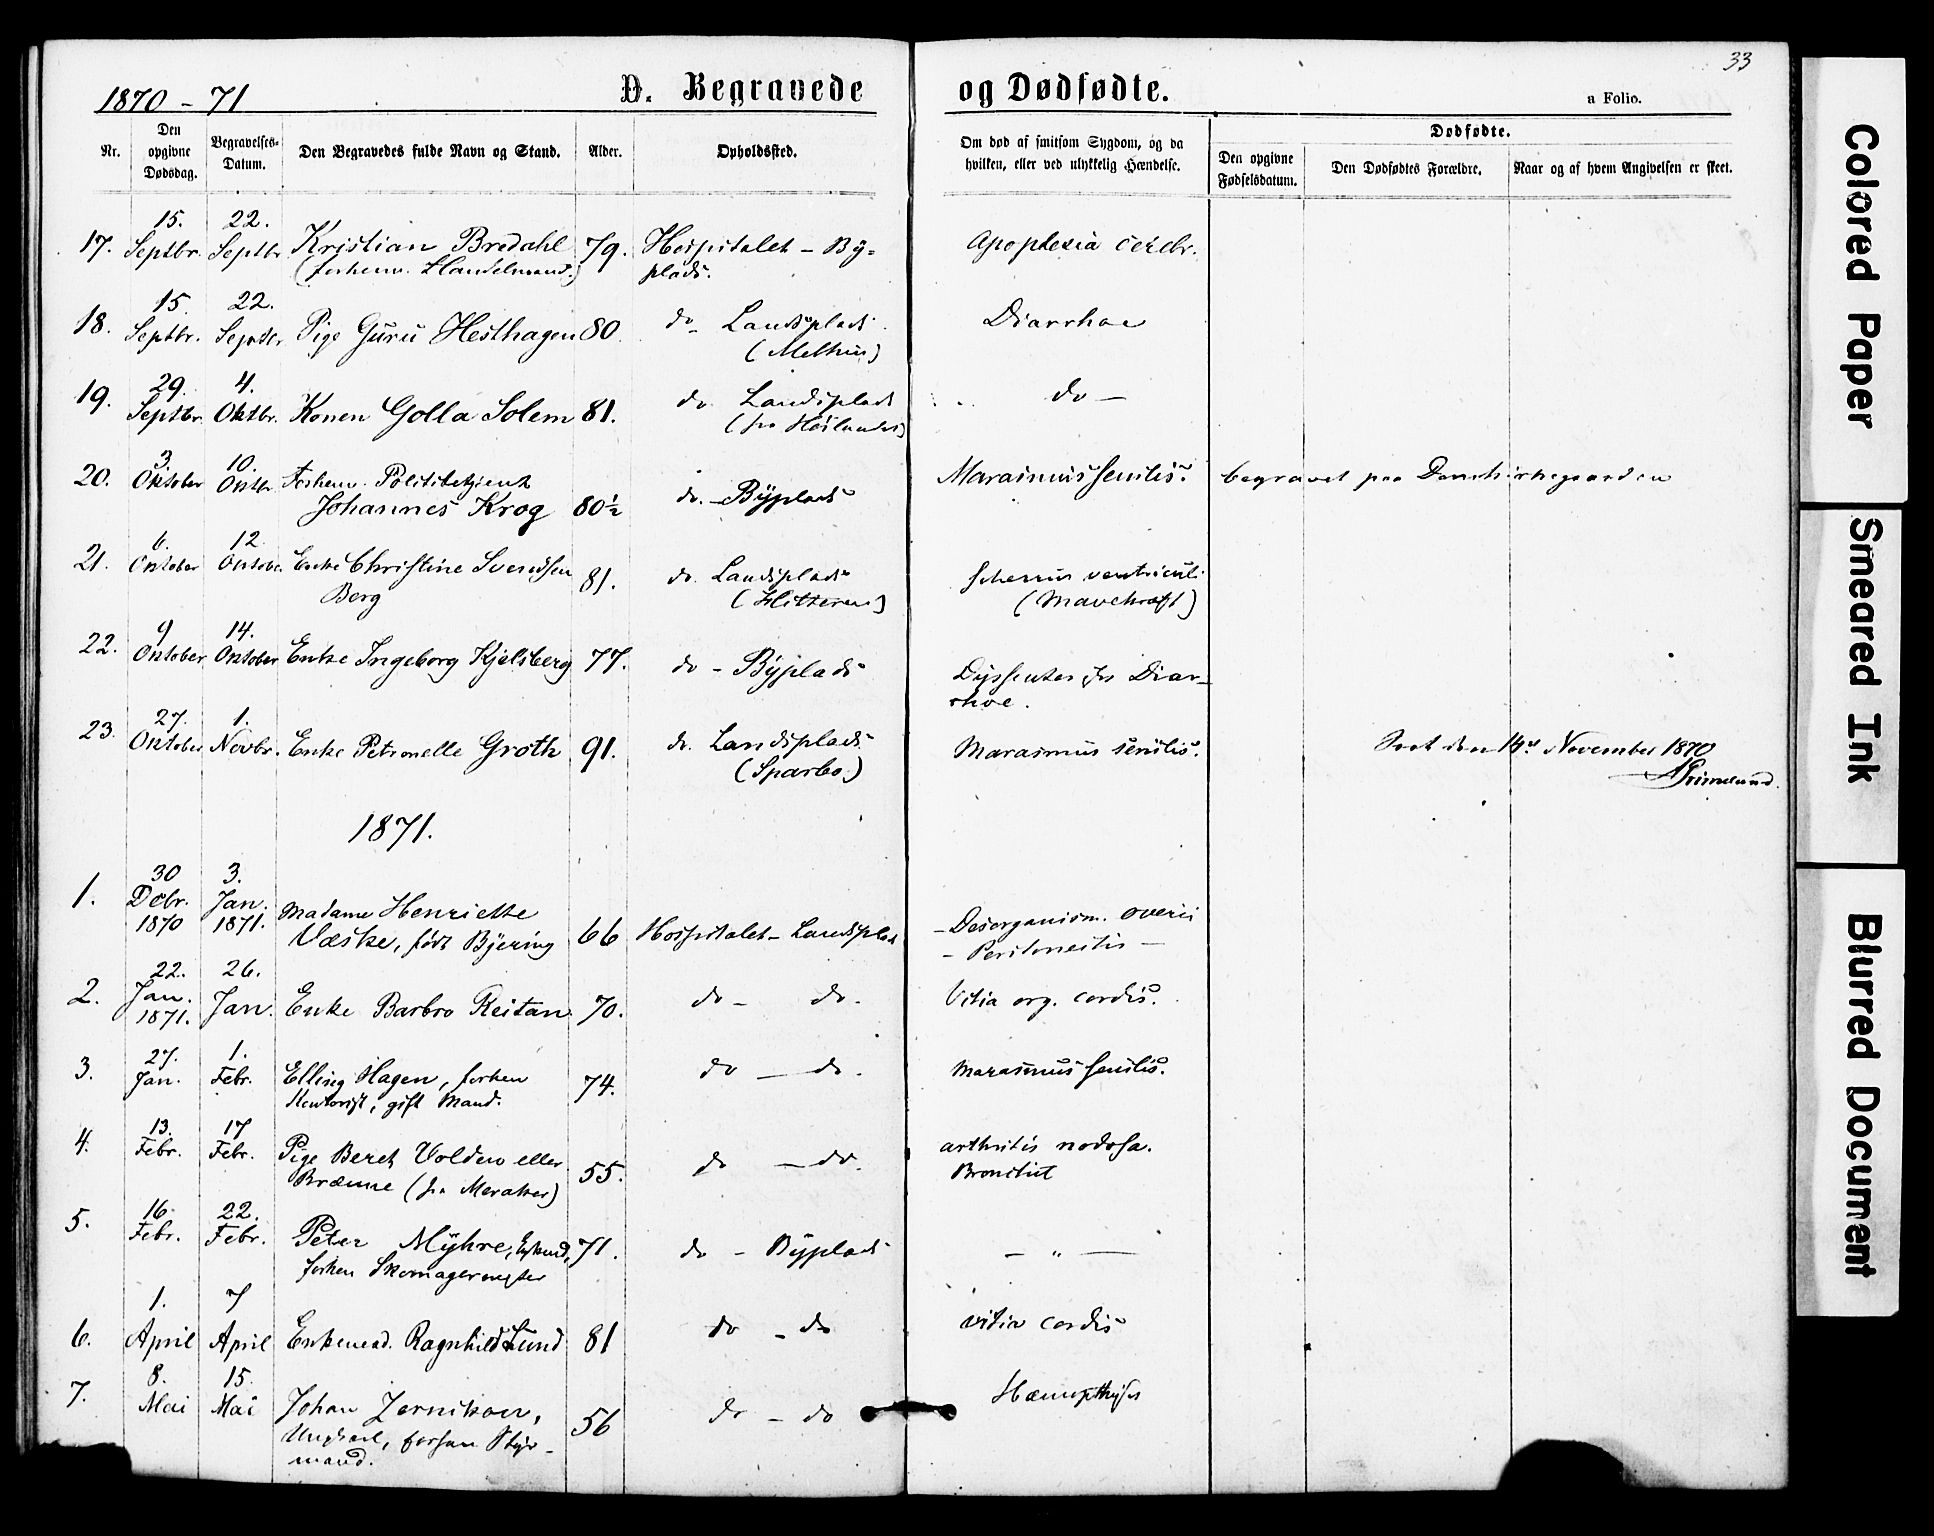 33
1870 - 71
D. Begravede og Dødfødte.
a Folio.
Nr.
Den opgivne Dødsdag.
Begravelses-Datum.
Den Begravedes fulde Navn og Stand.
Alder.
Opholdssted.
Om død af smitsom Sygdom, og da hvilken, eller ved ulykkelig Hændelse.
Dødfødte.
Den opgivne Fødselsdatum.
Den Dødfødtes Forældre.
Naar og af hvem Angivelsen er skeet.
17. 15. Septbr. 22. Septbr Kristian Bredahl 79. Hospitalet - By- Apoplexia cerebr.
(forhenv. Handelsmand.) plads.
18. 15. Septbr. 22. Septbr Pige Guru Hesthagen 80. do - Landsplads Diarrhoe
(Melhus)
19. 29. Septbr. 4. Oktbr. Konen Golla Solem 81. do Landsplads do -
(fra Høilandet)
20. 3. Oktober 10. Oktbr Forhenv. Polititetjent
Johannes Krog 80½ do. - Byplads Marasmus senilis. begravet paa Domkirkegaarden
21. 6. Oktober 12 Oktober Enke Christine Svendsen 81. do. Landsplads Schirrus ventriculi
Berg (Hitteren) (Mavekræft)
22. 9 Oktober 14. Oktober Enke Ingeborg Kjelsberg 77. do - Byplads Dyssenter Diar-
rhoe.
23. 27. Oktober 1. Novbr. Enke Petronelle Groth 91. do. Landsplads Marasmus senilis. Seet den 14de November 1870
(Sparbo.) Grimelund.
1871.
1. 30 Debr. 1870 3. Jan. 1871. Madame Henriette
Væske, født Byering 66 Hospitalet - Landsplads - Desorganism. ovarii
- Peritoneitis -
2. 22. Jan. 1871. 26. Jan. Enke Barbro Reitan 70. do - do. Vitia org. cordis.
3. 27. Jan. 1. Febr. Elling Hagen, forhen 74. do - do. Marasmus senilis.
Kontorist, gift Mand.
4. 13. Febr. 17 Febr. Pige Beret Volden eller 55. do - do. arthritis nodosa.
Brænne (fra Meraker) Bronchit
5. 16. Febr. 22. Febr. Peter Myhre, Enkemd, 71. do - Byplads - " -
forhen Skomagermester
6. 1. April 7 April Enkemad. Ragnhild Lund 81 do - do vitia cordis
7. 8. Mai 15. Mai Johan Zernikow, 56 do - do Hæmopthyse
Ungkarl, forhen Styr-
mand.
Colored Paper
Smeared Ink
Blurred Document